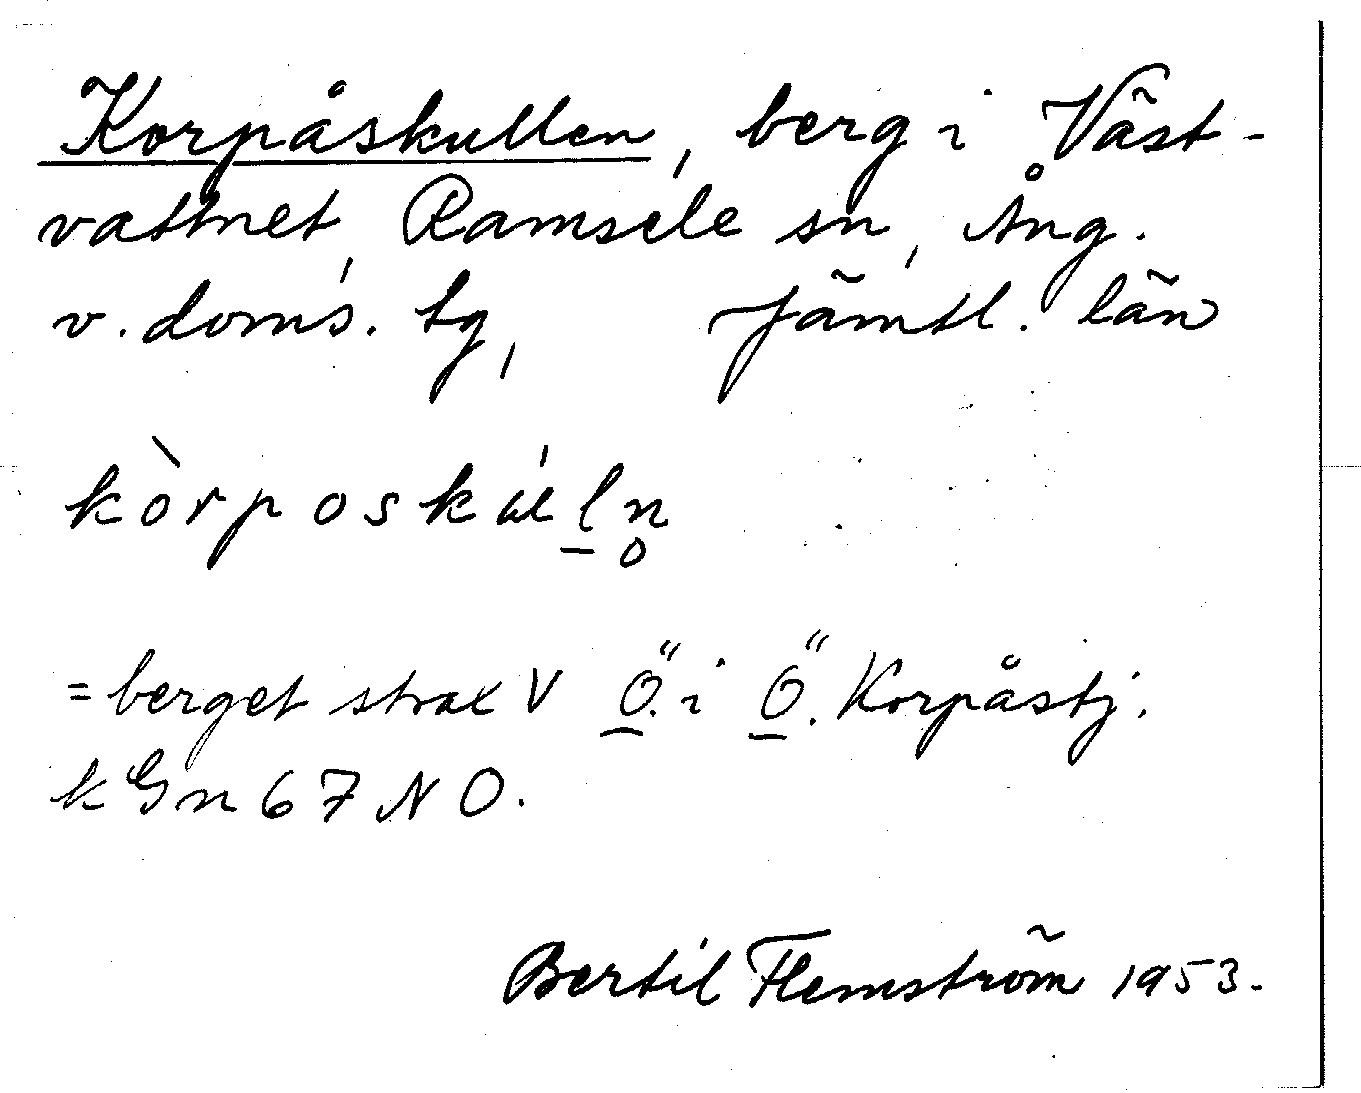 Korpåskullen, berg i Väst-
vattnet, Ramsele sn, Ång.
v. doms. tg, Jämtl. län
kòrposkúl̲n̥
= berget strax V Ö̲. i Ö̲. Korpåstj.
kGn 67 NO.
Bertil Flemström 1953.